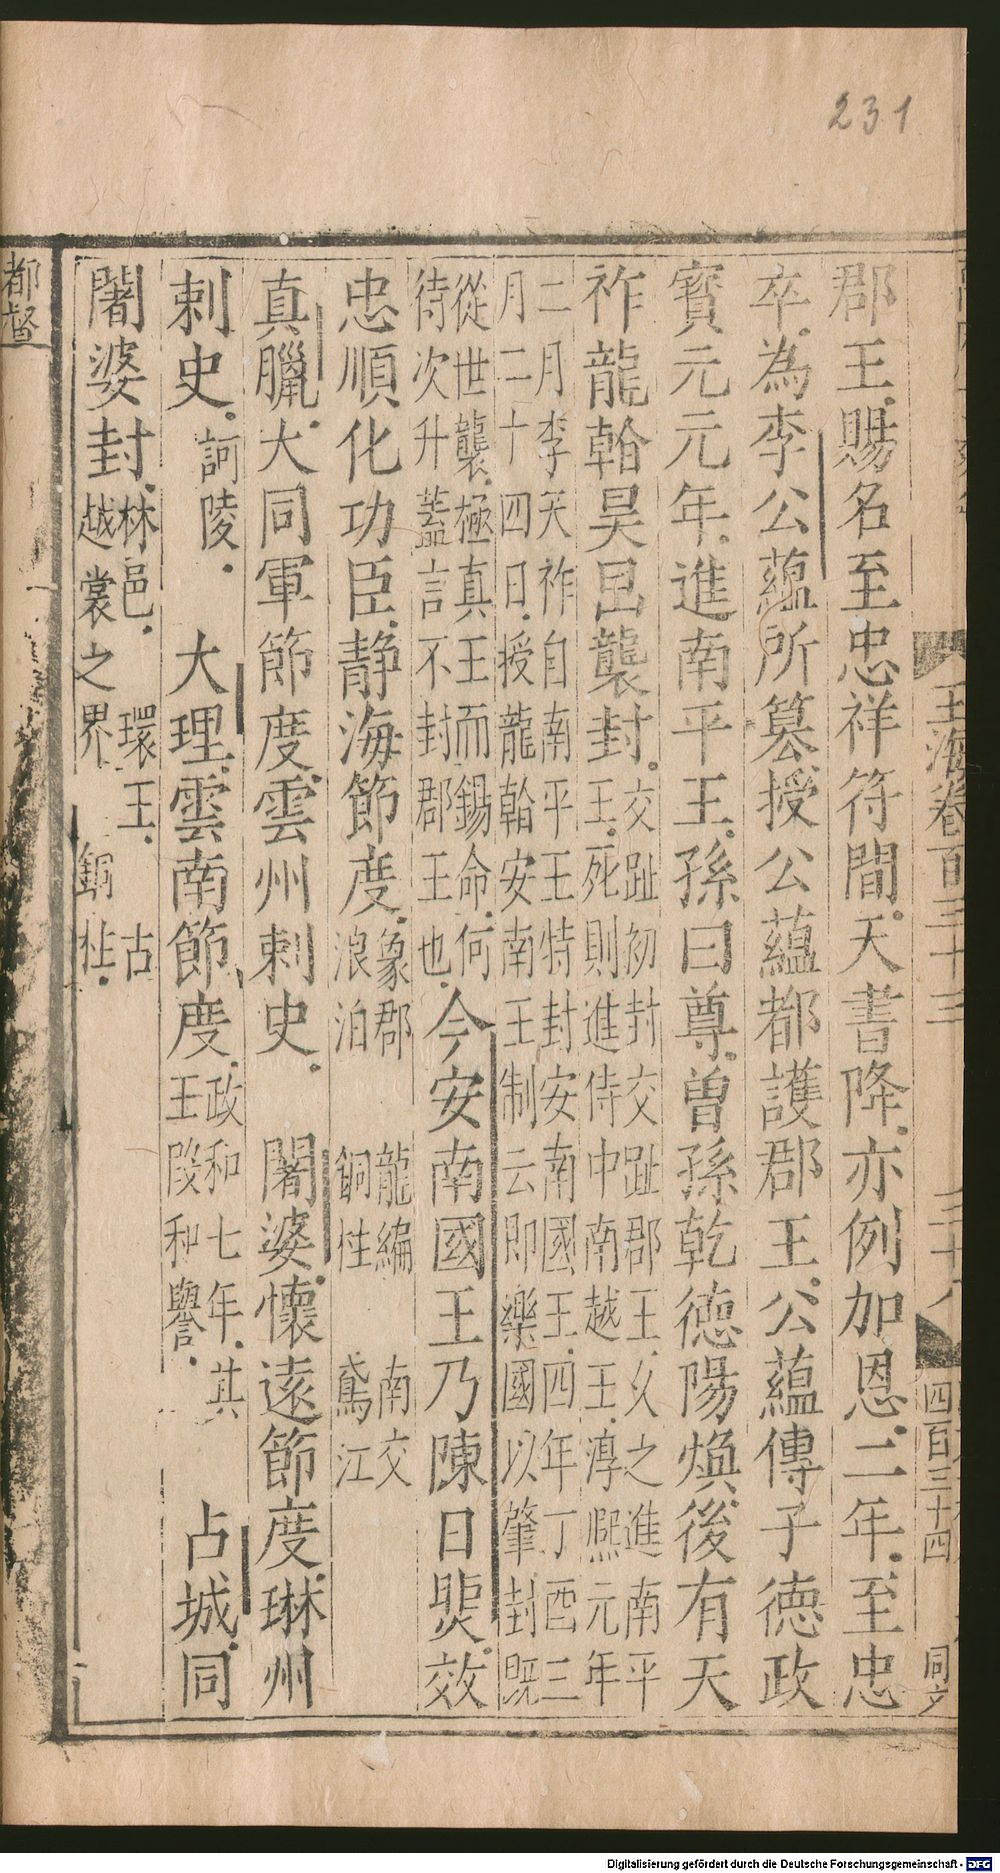 231
玉海卷百三十三
二十八
四百三十四
同文
郡王賜名至忠祥符間天書降亦例加恩二年至忠
卒為李公蘊所篡授公蘊都護郡王公蘊傳子德政
寶元元年進南平王孫曰尊曾孫乾德陽煥後有天
祚龍𦒋昊旵襲封交趾初封交趾郡王久之進南平
王死則進侍中南越王淳熙元年
二月李天祚自南平王特封安南國王四年丁酉三
月二十四日授龍𦒋安南王制云即樂國以肇封既
從世襲極真王而錫命何
待次升蓋言不封郡王也今安南國王乃陳日煚效
忠順化功臣靜海節度象郡 龍編 南交
浪泊 銅柱 鳶江
真臘大同軍節度雲州刺史 闍婆懷遠節度琳州
刺史訶陵 大理雲南節度政和七年其
王段和譽 占城同
闍婆封林邑 環王 古
越裳之界 銅柱
都督
Digitalisierung gefördert durch die Deutsche Forschungsgemeinschaft - DFG